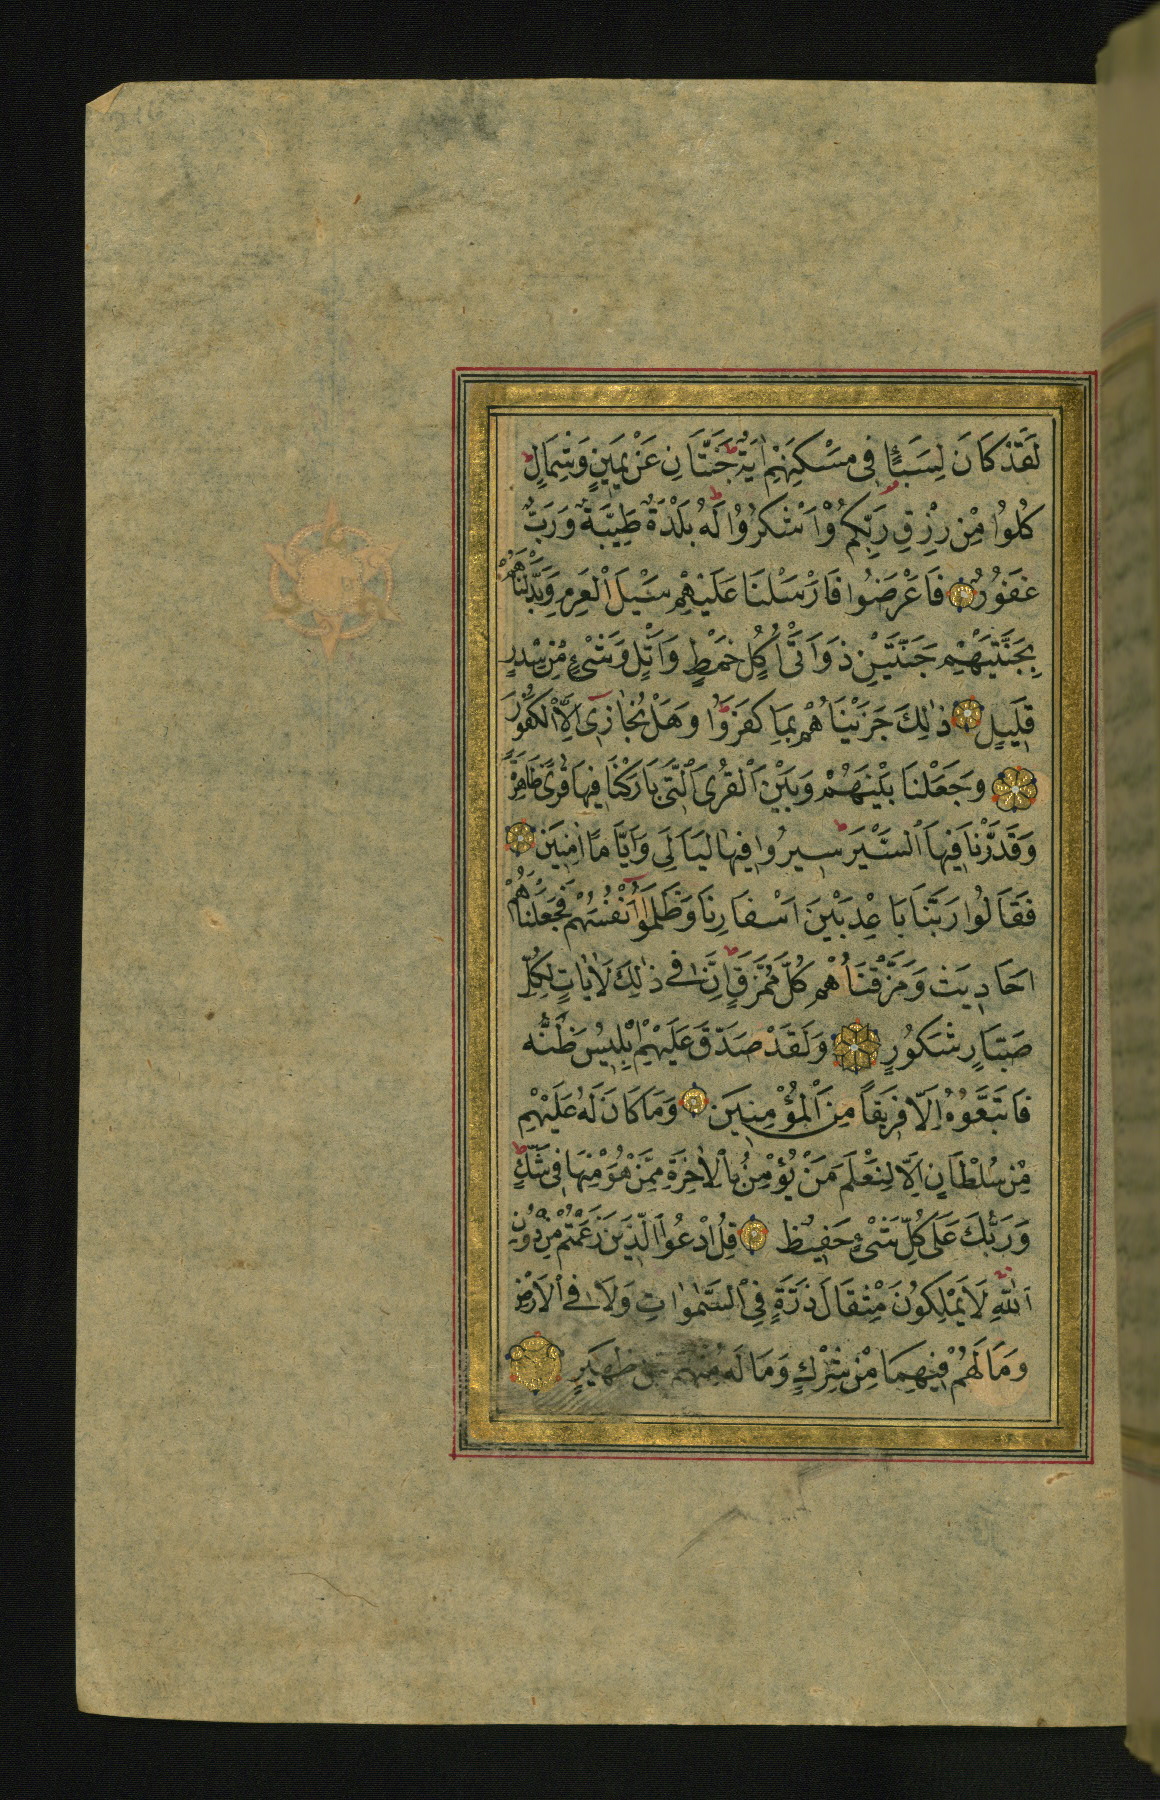 لَقَدْ كَانَ لِسَبَإٍ فِى مَسْكَنِهِمْ اٰيَةٌ جَنَّتَانِ عَنْ يَمِينٍ وَشِمَالٍ
كُلُوا مِنْ رِزْقِ رَبِّكُمْ وَاشْكُرُوا لَهُ بَلْدَةٌ طَيِّبَةٌ وَرَبٌّ
غَفُورٌ فَاَعْرَضُوا فَاَرْسَلْنَا عَلَيْهِمْ سَيْلَ الْعَرِمِ وَبَدَّلْنَاهُمْ
بِجَنَّتَيْهِمْ جَنَّتَيْنِ ذَوَاتَىْ اُكُلٍ خَمْطٍ وَاَثْلٍ وَشَىْءٍ مِنْ سِدْرٍ
قَلِيلٍ ذٰلِكَ جَزَيْنَاهُمْ بِمَا كَفَرُوا وَهَلْ نُجَازِى اِلَّا الْكَفُورَ
وَجَعَلْنَا بَيْنَهُمْ وَبَيْنَ الْقُرَى الَّتِى بَارَكْنَا فِيهَا قُرًى ظَاهِرَةً
وَقَدَّرْنَا فِيهَا السَّيْرَ سِيرُوا فِيهَا لَيَالِىَ وَاَيَّامًا اٰمِنِينَ
فَقَالُوا رَبَّنَا بَاعِدْ بَيْنَ اَسْفَارِنَا وَظَلَمُوا اَنْفُسَهُمْ فَجَعَلْنَاهُمْ
اَحَادِيثَ وَمَزَّقْنَاهُمْ كُلَّ مُمَزَّقٍ اِنَّ فِى ذٰلِكَ لَاٰيَاتٍ لِكُلِّ
صَبَّارٍ شَكُورٍ وَلَقَدْ صَدَّقَ عَلَيْهِمْ اِبْلِيسُ ظَنَّهُ
فَاتَّبَعُوهُ اِلَّا فَرِيقًا مِنَ الْمُؤْمِنِينَ وَمَا كَانَ لَهُ عَلَيْهِمْ
مِنْ سُلْطَانٍ اِلَّا لِنَعْلَمَ مَنْ يُؤْمِنُ بِالْاٰخِرَةِ مِمَّنْ هُوَ مِنْهَا فِى شَكٍّ
وَرَبُّكَ عَلَى كُلِّ شَىْءٍ حَفِيظٌ قُلِ ادْعُوا الَّذِينَ زَعَمْتُمْ مِنْ دُونِ
اللّٰهِ لَا يَمْلِكُونَ مِثْقَالَ ذَرَّةٍ فِى السَّمٰوَاتِ وَلَا فِى الْاَرْضِ
وَمَا لَهُمْ فِيهِمَا مِنْ شِرْكٍ وَمَا لَهُ مِنْهُمْ مِنْ ظَهِيرٍ